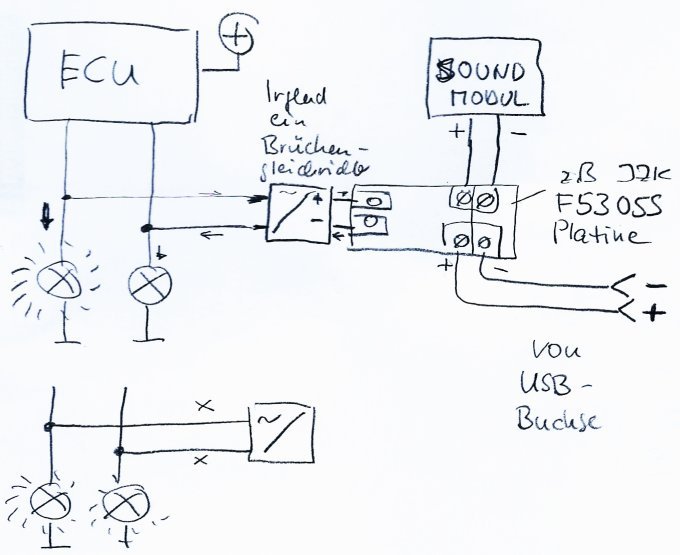 ECU
+
Irgend
ein
Brücken-
gleichrichter
~
+
−
SOUND
MODUL
+ −
zB JZK
F5305S
Platine
+ −
−
+
von
USB-
Buchse
x
x
~